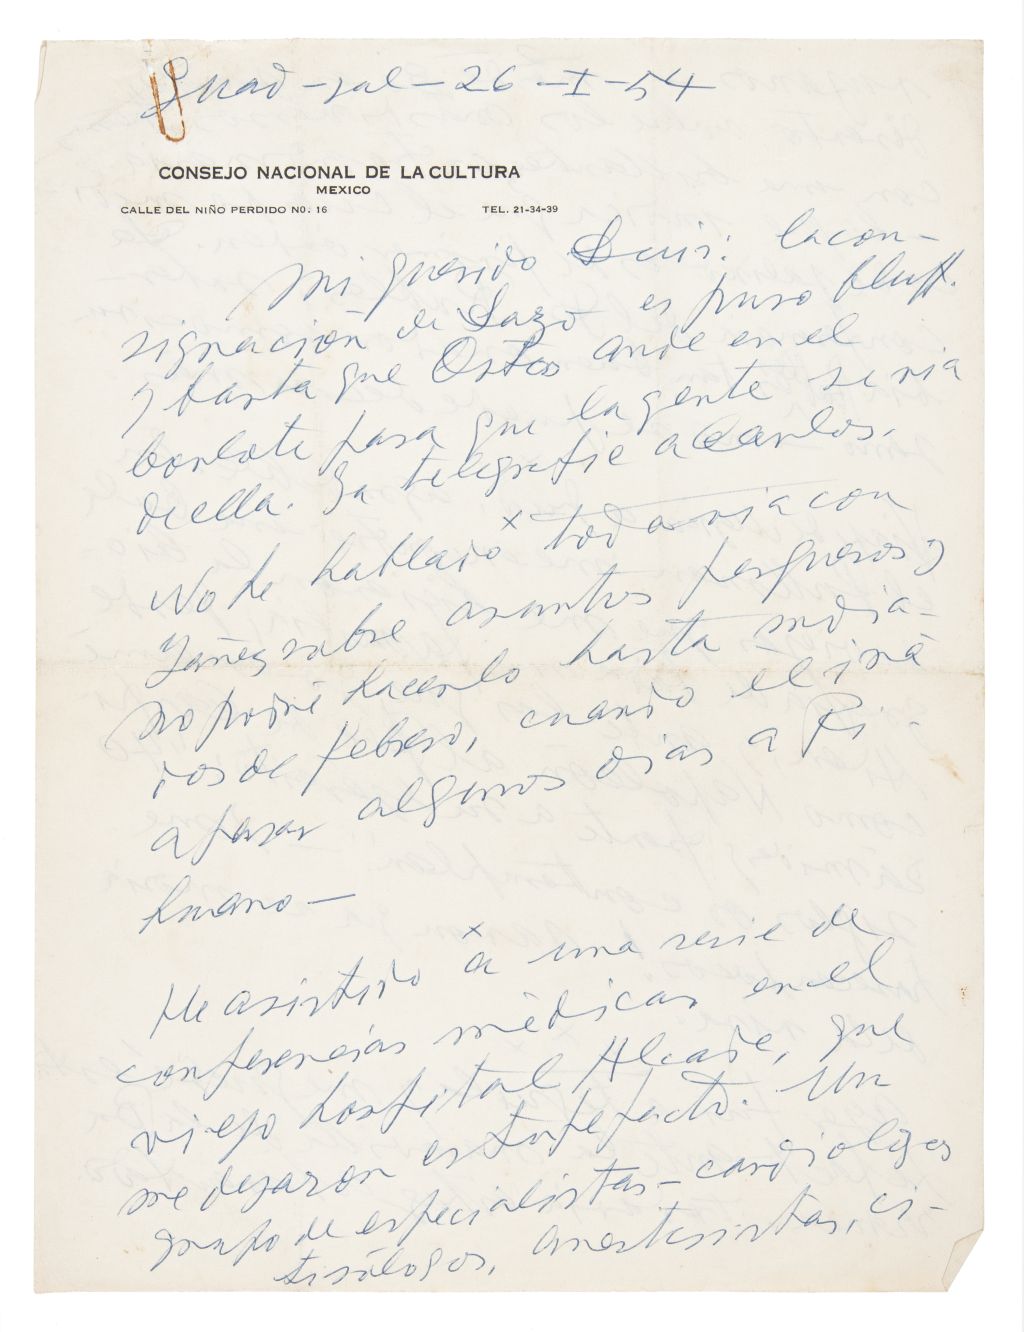 Guad-jal-26-I-54
CONSEJO NACIONAL DE LA CULTURA
MEXICO
CALLE DEL NIÑO PERDIDO NO. 16 TEL. 21-34-39
Mi querido Luis: la con-
signación de Lazo es puro bluff.
y basta que Ostos ande en el
borlote para que la gente se ria
de ella. Ya telegrafie a Carlos.
x
No he hablado todavia con
Yañez sobre asuntos pesqueros y
no podré hacerlo hasta media-
dos de febrero, cuando él irá
a pasar algunos dias a Ri-
huano-
x
He asistido a una serie de
conferencias médicas en el
viejo hospital Alcade, que
me dejaron estupefacto. Un
grupo de especialistas-cardiologos
tisiólogos, anestesistas, ci-